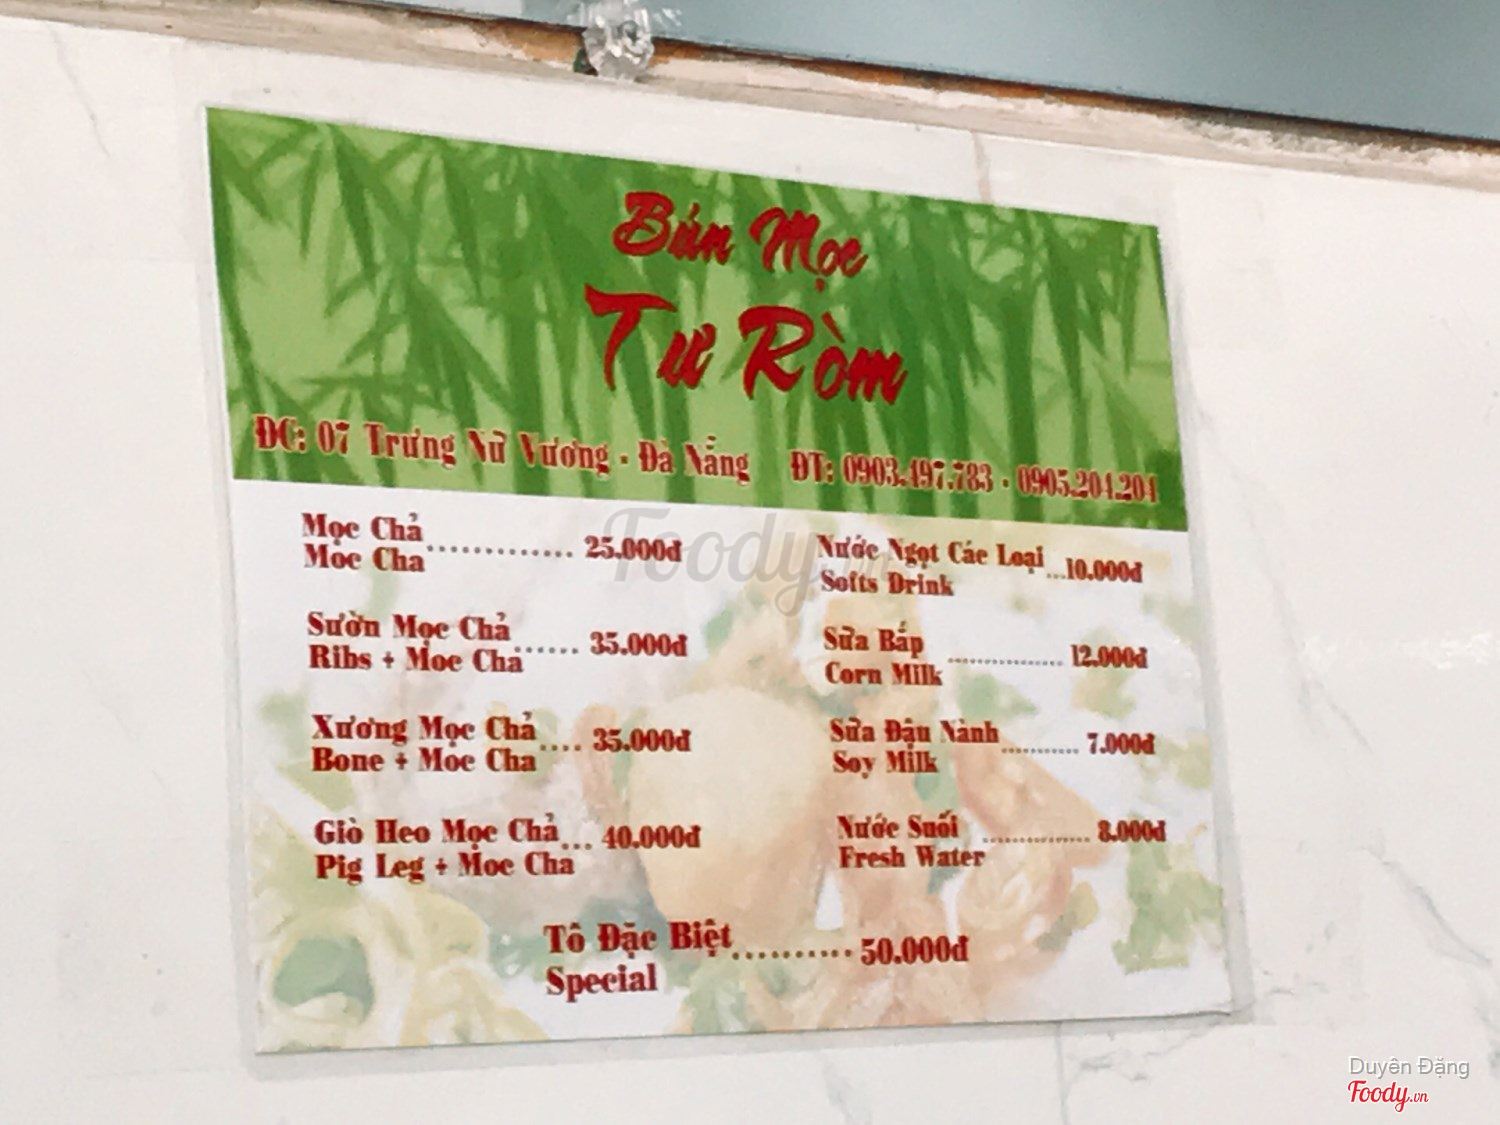 Bún Mọc
Tư Ròm
ĐC: 07 Trưng Nữ Vương - Đà Nẵng ĐT: 0903.497.783 - 0905.204.204
Mọc Chả
Moc Cha .............. 25.000đ
Sườn Mọc Chả
Ribs + Moc Cha ...... 35.000đ
Xương Mọc Chả
Bone + Moc Cha .... 35.000đ
Giò Heo Mọc Chả
Pig Leg + Moc Cha ... 40.000đ
Nước Ngọt Các Loại
Softs Drink ...10.000đ
Sữa Bắp
Corn Milk .............. 12.000đ
Sữa Đậu Nành
Soy Milk .......... 7.000đ
Nước Suối
Fresh Water .............. 8.000đ
Tô Đặc Biệt
Special .......... 50.000đ
Foody.vn
Duyên Đặng
Foody.vn